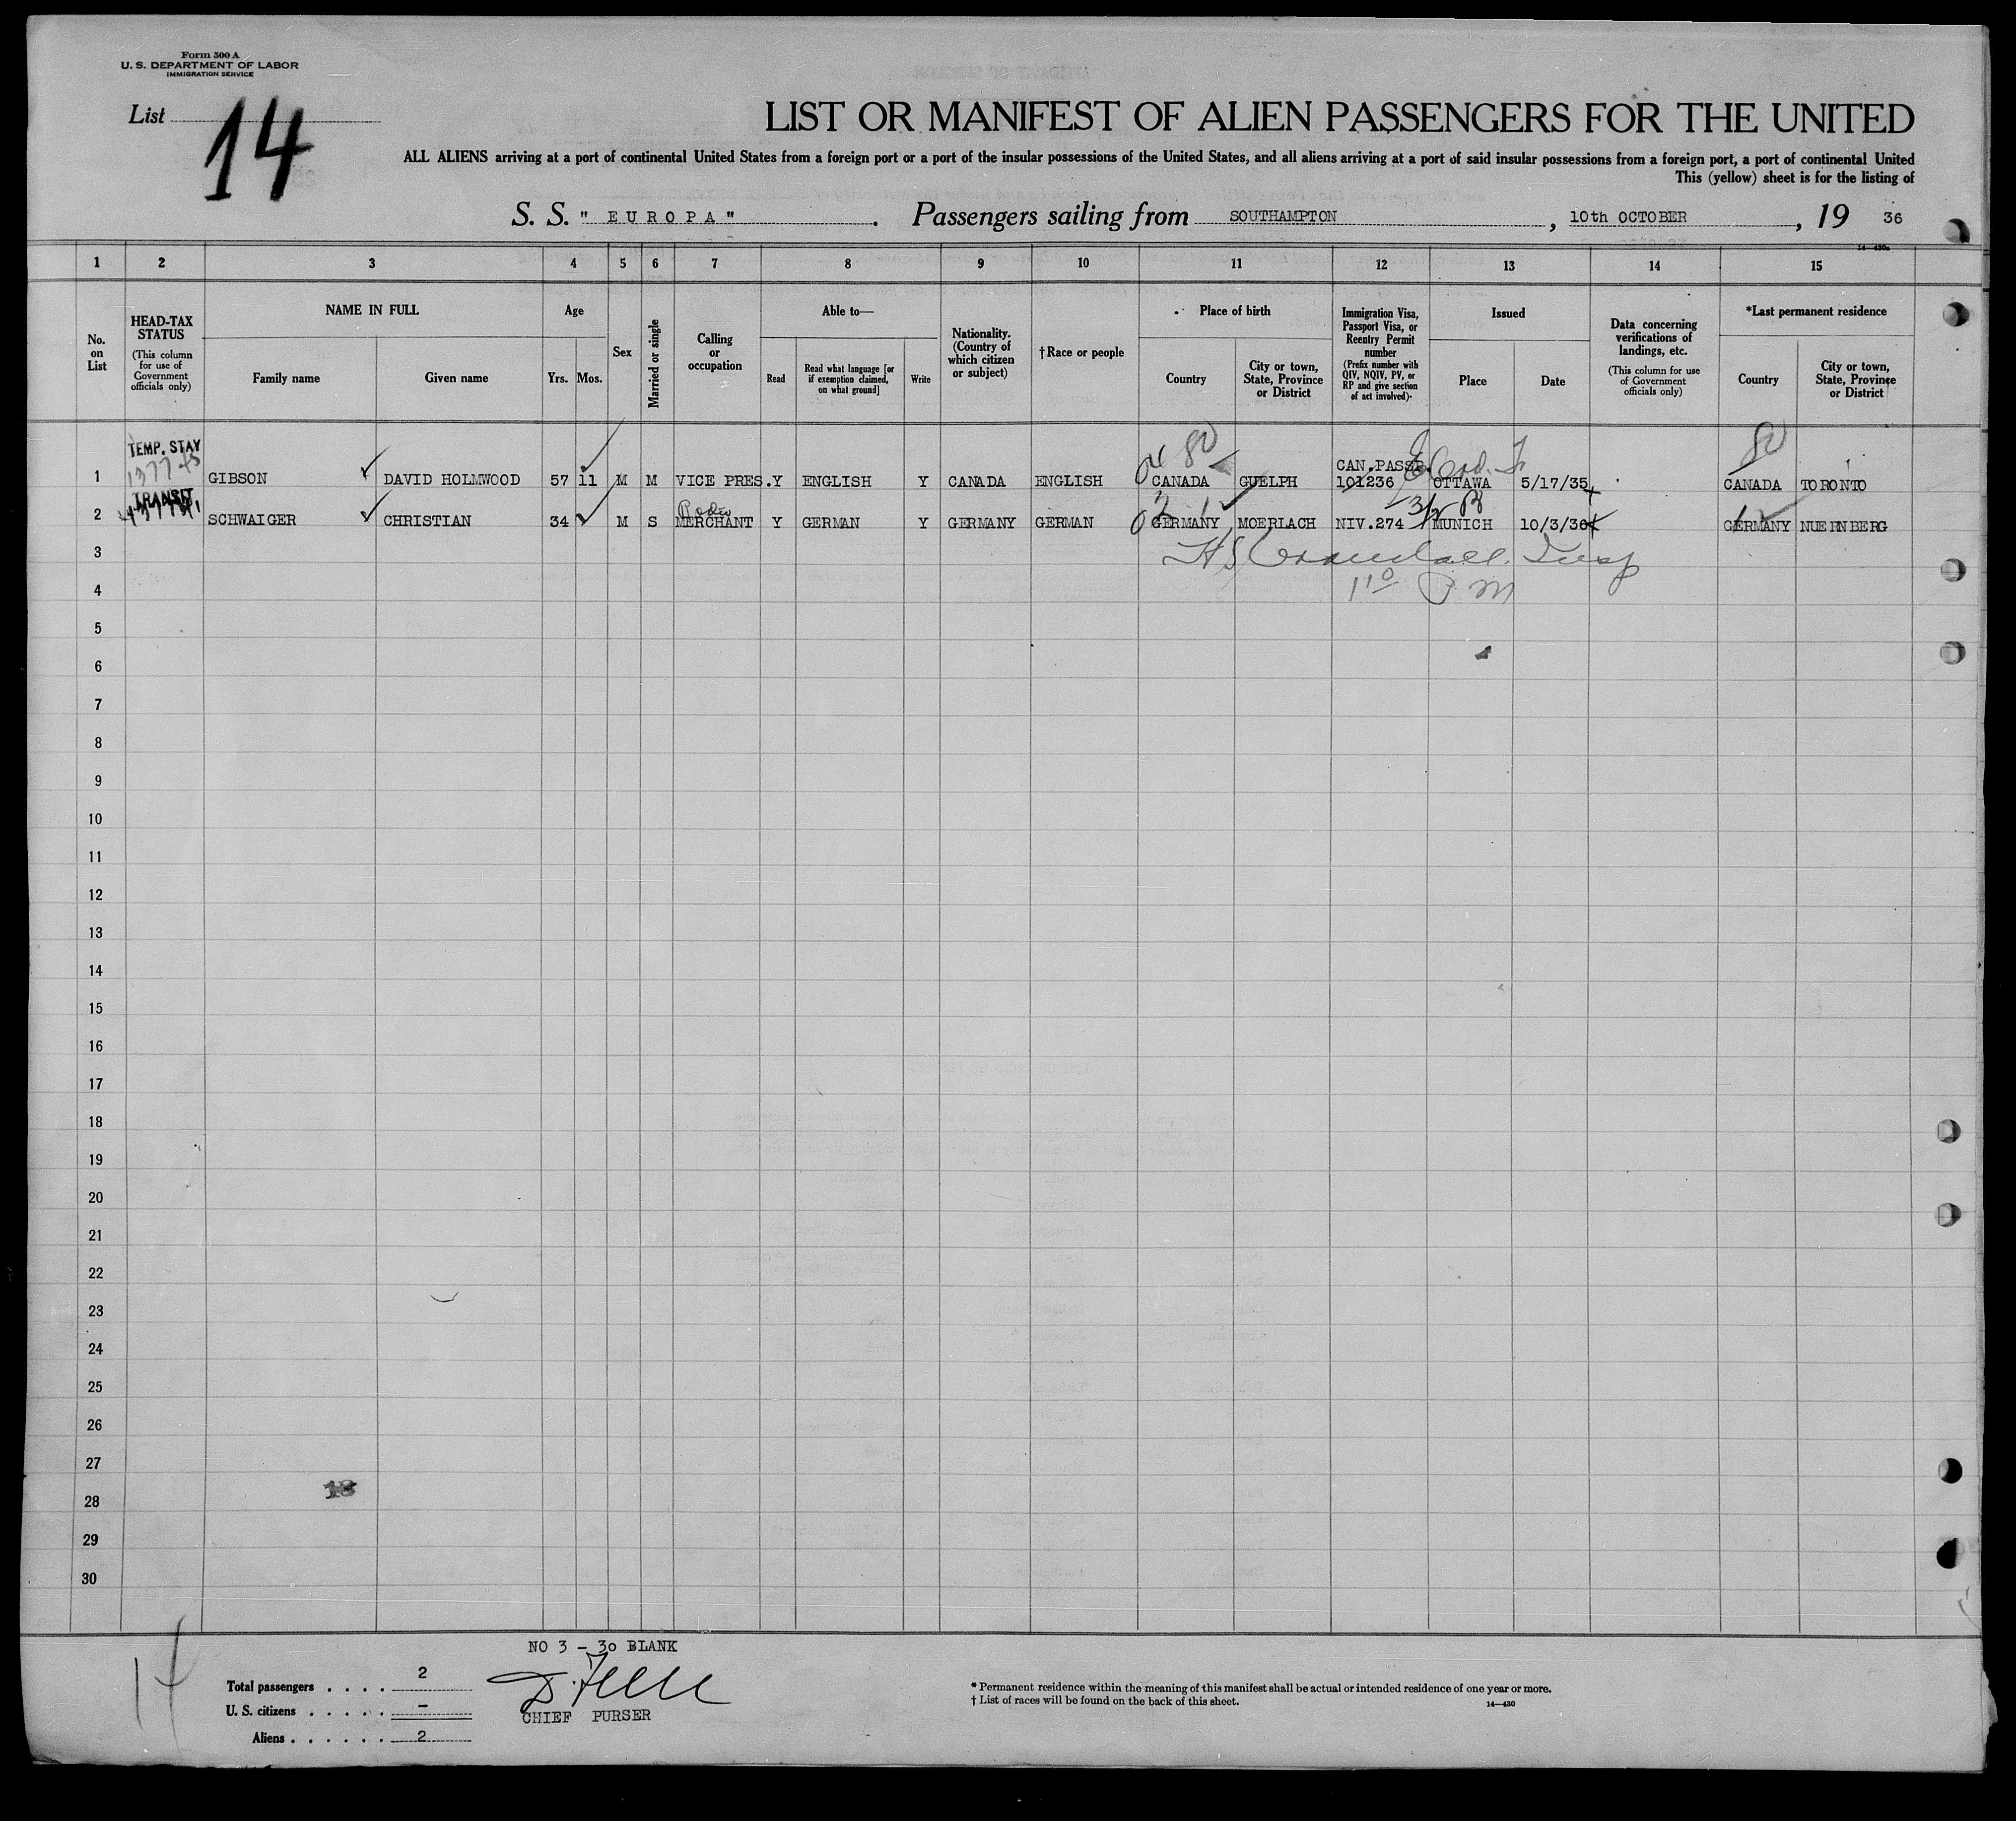 Form 500 A
U. S. DEPARTMENT OF LABOR
IMMIGRATION SERVICE
List 14
LIST OR MANIFEST OF ALIEN PASSENGERS FOR THE UNITED
ALL ALIENS arriving at a port of continental United States from a foreign port or a port of the insular possessions of the United States, and all aliens arriving at a port of said insular possessions from a foreign port, a port of continental United
This (yellow) sheet is for the listing of
S. S. " EUROPA ". Passengers sailing from SOUTHAMPTON, 10th OCTOBER, 19 36
1 2 3 4 5 6 7 8 9 10 11 12 13 14 15
No. on List
HEAD-TAX STATUS
(This column for use of Government officials only)
NAME IN FULL
Family name
Given name
Age
Yrs. Mos.
Sex
Married or single
Calling or occupation
Able to—
Read
Read what language [or if exemption claimed, on what ground]
Write
Nationality. (Country of which citizen or subject)
† Race or people
Place of birth
Country
City or town, State, Province or District
Immigration Visa, Passport Visa, or Reentry Permit number
(Prefix number with QIV, NQIV, PV, or RP and give section of act involved)
Issued
Place
Date
Data concerning verifications of landings, etc.
(This column for use of Government officials only)
*Last permanent residence
Country
City or town, State, Province or District
TEMP. STAY
CAN.PASSP.
1 GIBSON DAVID HOLMWOOD 57 11 M M VICE PRES. Y ENGLISH Y CANADA ENGLISH CANADA GUELPH 101236 OTTAWA 5/17/35 CANADA TORONTO
TRANSIT
2 SCHWAIGER CHRISTIAN 34 M S MERCHANT Y GERMAN Y GERMANY GERMAN GERMANY MOERLACH NIV.274 MUNICH 10/3/36 GERMANY NUERNBERG
3
4 1 10 P M
5
6
7
8
9
10
11
12
13
14
15
16
17
18
19
20
21
22
23
24
25
26
27
28
29
30
14
NO 3 - 30 BLANK
Total passengers . . . . 2
U. S. citizens . . . . . –
Aliens . . . . . . 2
CHIEF PURSER
* Permanent residence within the meaning of this manifest shall be actual or intended residence of one year or more.
† List of races will be found on the back of this sheet.
14—430